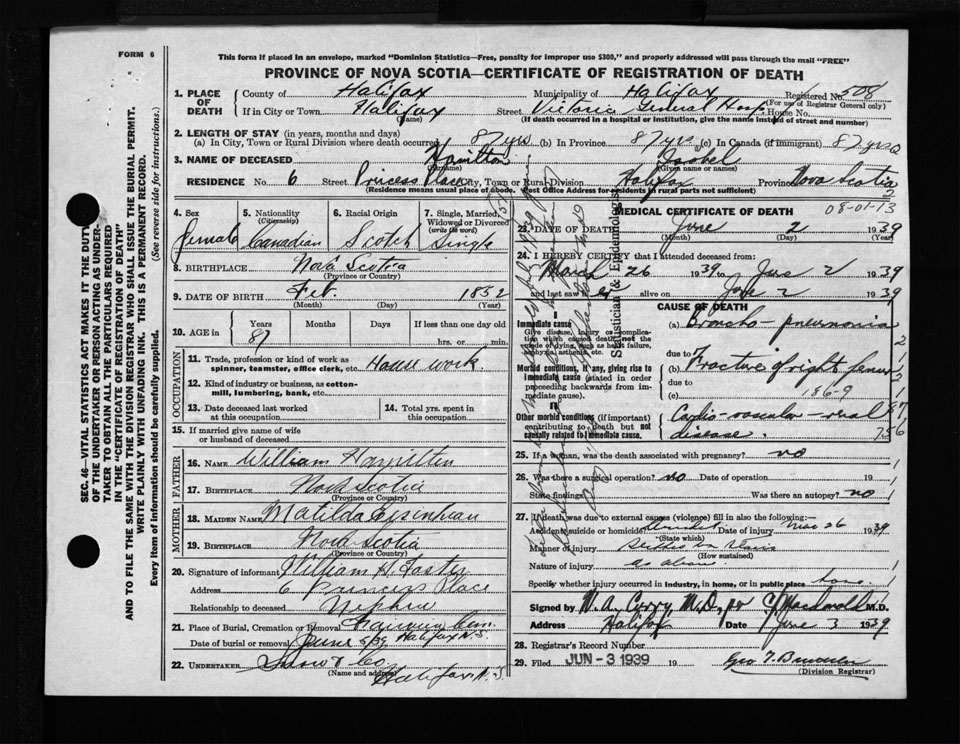 FORM 6
This form if placed in an envelope, marked "Dominion Statistics—Free, penalty for improper use $300," and properly addressed will pass through the mail "FREE"
PROVINCE OF NOVA SCOTIA—CERTIFICATE OF REGISTRATION OF DEATH
SEC. 46—VITAL STATISTICS ACT MAKES IT THE DUTY
OF THE UNDERTAKER OR PERSON ACTING AS UNDER-
TAKER TO OBTAIN ALL THE PARTICULARS REQUIRED
IN THE "CERTIFICATE OF REGISTRATION OF DEATH"
AND TO FILE THE SAME WITH THE DIVISION REGISTRAR WHO SHALL ISSUE THE BURIAL PERMIT.
WRITE PLAINLY WITH UNFADING INK. THIS IS A PERMANENT RECORD.
Every item of information should be carefully supplied. (See reverse side for instructions.)
1. PLACE OF DEATH County of Halifax Municipality of Halifax Registered No. 508
(For use of Registrar General only)
If in City or Town Halifax Street Victoria General Hosp House No.
(Name) (If death occurred in a hospital or institution, give the name instead of street and number)
2. LENGTH OF STAY (in years, months and days)
(a) In City, Town or Rural Division where death occurred 87 yrs (b) In Province 87 yrs (c) In Canada (if immigrant) 87 yrs
3. NAME OF DECEASED Hamilton Isobel
(Surname) (Given name or names)
RESIDENCE No. 6 Street Princess Place City, Town or Rural Division Halifax Province Nova Scotia
(Residence means usual place of abode. Post Office Address for residents in rural parts not sufficient)
4. Sex 5. Nationality (Citizenship) 6. Racial Origin 7. Single, Married, Widowed or Divorced (write the word)
Female Canadian Scotch Single
8. BIRTHPLACE Nova Scotia
(Province or Country)
9. DATE OF BIRTH Feb. 1852
(Month) (Day) (Year)
10. AGE in Years Months Days If less than one day old
87 hrs. or min.
OCCUPATION
11. Trade, profession or kind of work as spinner, teamster, office clerk, etc. House work.
12. Kind of industry or business, as cotton-mill, lumbering, bank, etc.
13. Date deceased last worked at this occupation 14. Total yrs. spent in this occupation
15. If married give name of wife or husband of deceased
FATHER
16. Name William Hamilton
17. Birthplace Nova Scotia
(Province or Country)
MOTHER
18. Maiden Name Matilda
19. Birthplace Nova Scotia
(Province or Country)
20. Signature of informant William H. Foster
Address 6 Princess Place
Relationship to deceased Nephew
21. Place of Burial, Cremation or Removal Fairview Cem.
Date of burial or removal June 5/39 Halifax N.S.
22. UNDERTAKER Snow & Co
(Name and address) Halifax N.S.
MEDICAL CERTIFICATE OF DEATH
08-01-13
23. DATE OF DEATH June 2 1939
(Month) (Day) (Year)
24. I HEREBY CERTIFY that I attended deceased from:
March 26 1939 to June 2 1939
and last saw h er alive on June 2 1939
CAUSE OF DEATH
Immediate cause
Give disease, injury or complication which caused death, not the mode of dying, such as heart failure, asphyxia, asthenia, etc.
(a) Broncho-pneumonia
due to
Morbid conditions, if any, giving rise to immediate cause (stated in order proceeding backwards from immediate cause).
(b) Fracture of right femur
due to
(c) 186-9
Other morbid conditions (if important) contributing to death but not causally related to immediate cause.
Cardio-vascular-renal disease.
Statistician & Epidemiologist
25. If a woman, was the death associated with pregnancy? no
26. Was there a surgical operation? no Date of operation 19
State findings Was there an autopsy? no
27. If death was due to external causes (violence) fill in also the following:
Accident, suicide or homicide? Accident Date of injury Mar 26 1939
(State which)
Manner of injury
(How sustained)
Nature of injury as above
Specify whether injury occurred in industry, in home, or in public place home
Signed by W. A. Curry M.D., per M.D.
Address Halifax Date June 3 1939
28. Registrar's Record Number
29. Filed JUN - 3 1939 19
(Division Registrar)